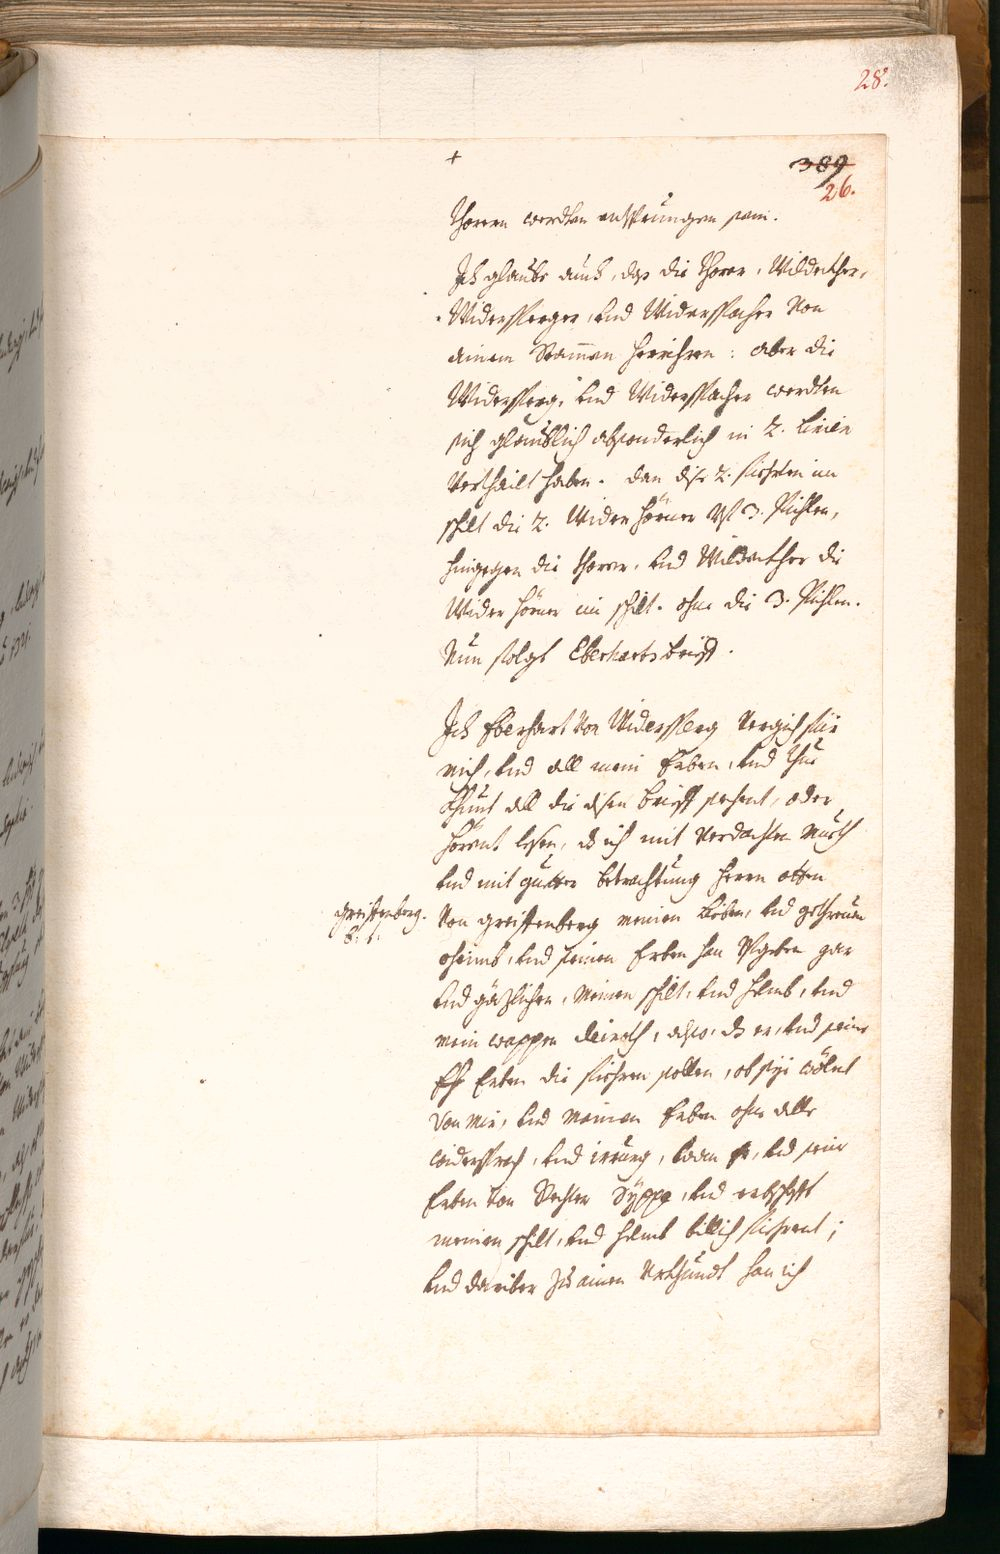 28.
+
389
26.
Thorern werdten entsprungen sein.
Ich glaube auch, das die Thorer, Wildenther,
Widersperger, und Widerspacher von
ainem Stammen herriehren: aber die
Widersperg. und Widerspacher werdten
sich glaublich absonderlich in 2. Linien
vertheilt haben. dan dise 2. fiehrten im
schilt die 2. Wider hörner uf 3. Pichlen,
hingegen die Thorer, und Wildenther die
Wider hörner im schilt. ohne die 3. Pichlen.
Nun folgt Eberharts brieff.
Ich Eberhart von Widersperg vergich für
mich, und all mein Erben, und thue
khunt all die disen brieff sehent, oder
hörent lesen, ds ich mit verdachten mueth
und mit gutter betrachtung herrn otten
greiffenberg.
von greiffenberg meinen Lieben, und gethreuen
oheimb, und seinen Erben han Vgeben gar
und gäzlichen, meinen schilt, und helmb, und
mein wappen, also, ds er, und seine
Erben die fiehren sollen, ob syi wöllent
von mir, und meinen Erben ohne alle
widersprach, und irrung, und seine
Erben von Rechter Sÿppe, und erbschafft
meinen schilt, und helmb billich fiehrent;
und dariber zu ainen Vrkhundt han ich